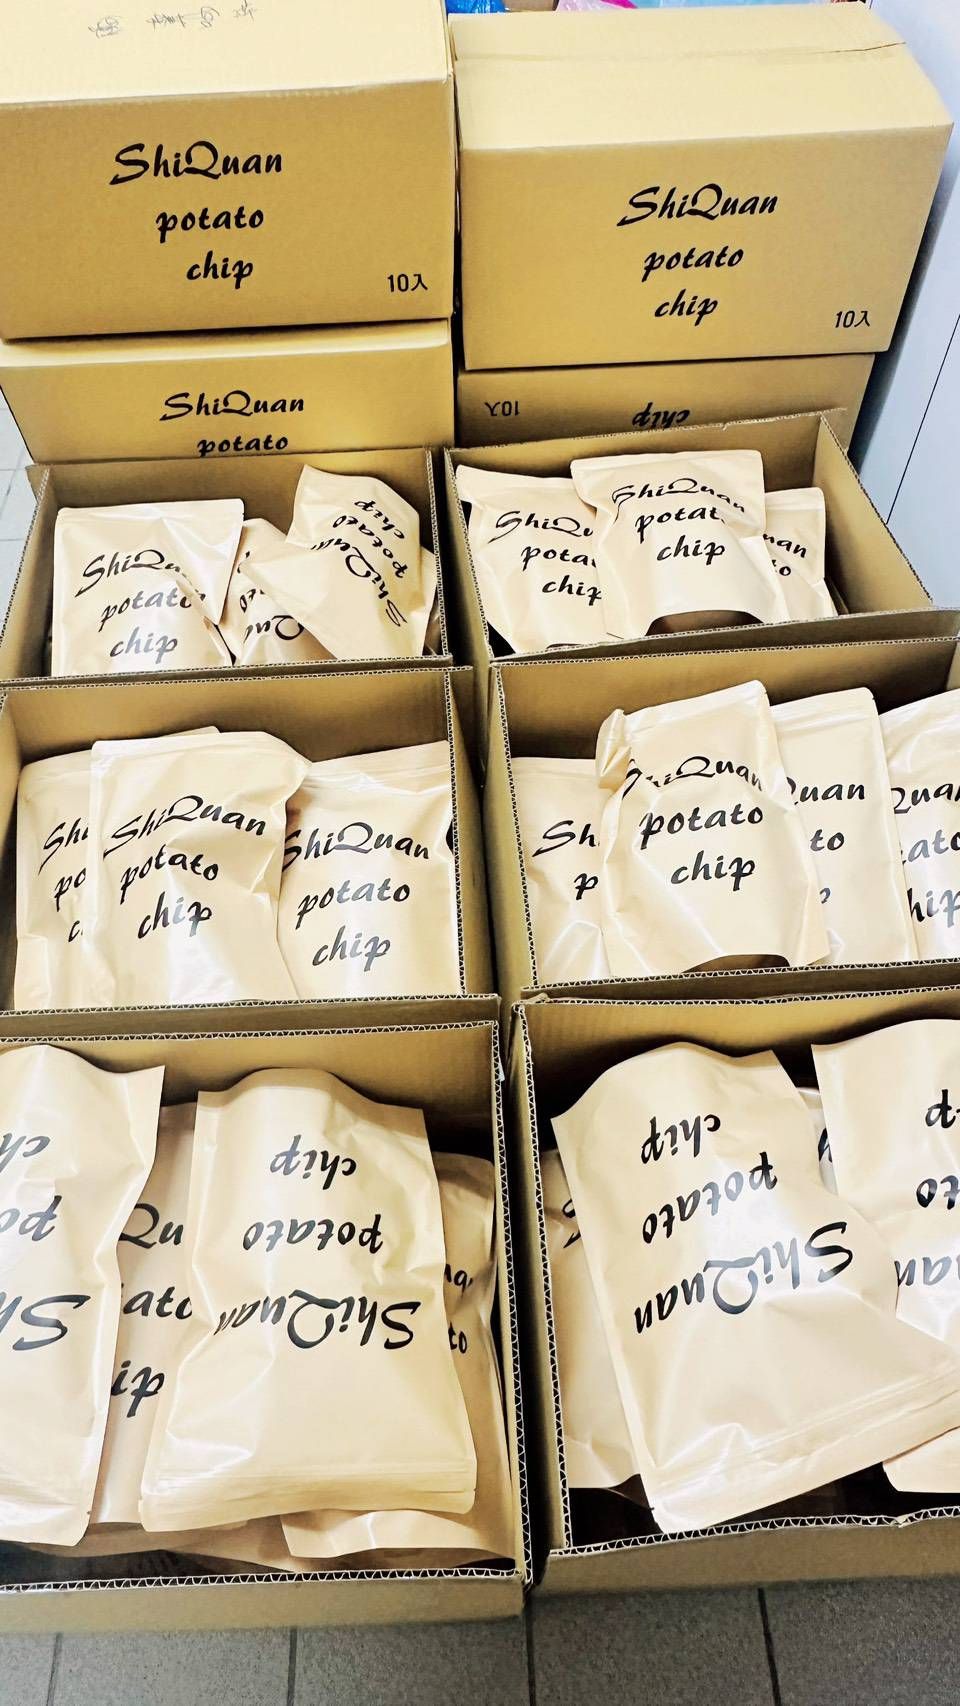 ShiQuan
potato
chip
10入
ShiQuan
potato
chip
10入
ShiQuan
potato
10入
chip
ShiQuan
potato
chip
ShiQuan
potato
chip
ShiQuan
potato
chip
ShiQuan
potato
chip
ShiQuan
potato
chip
ShiQuan
potato
chip
ShiQuan
potato
chip
ShiQuan
potato
chip
ShiQuan
potato
chip